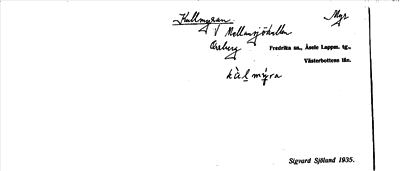 Kallmyran Myr
V Mellansjökullen
Oreberg Fredrika sn., Åsele Lappm. tg.,
Västerbottens län.
Sigvard Sjölund 1935.